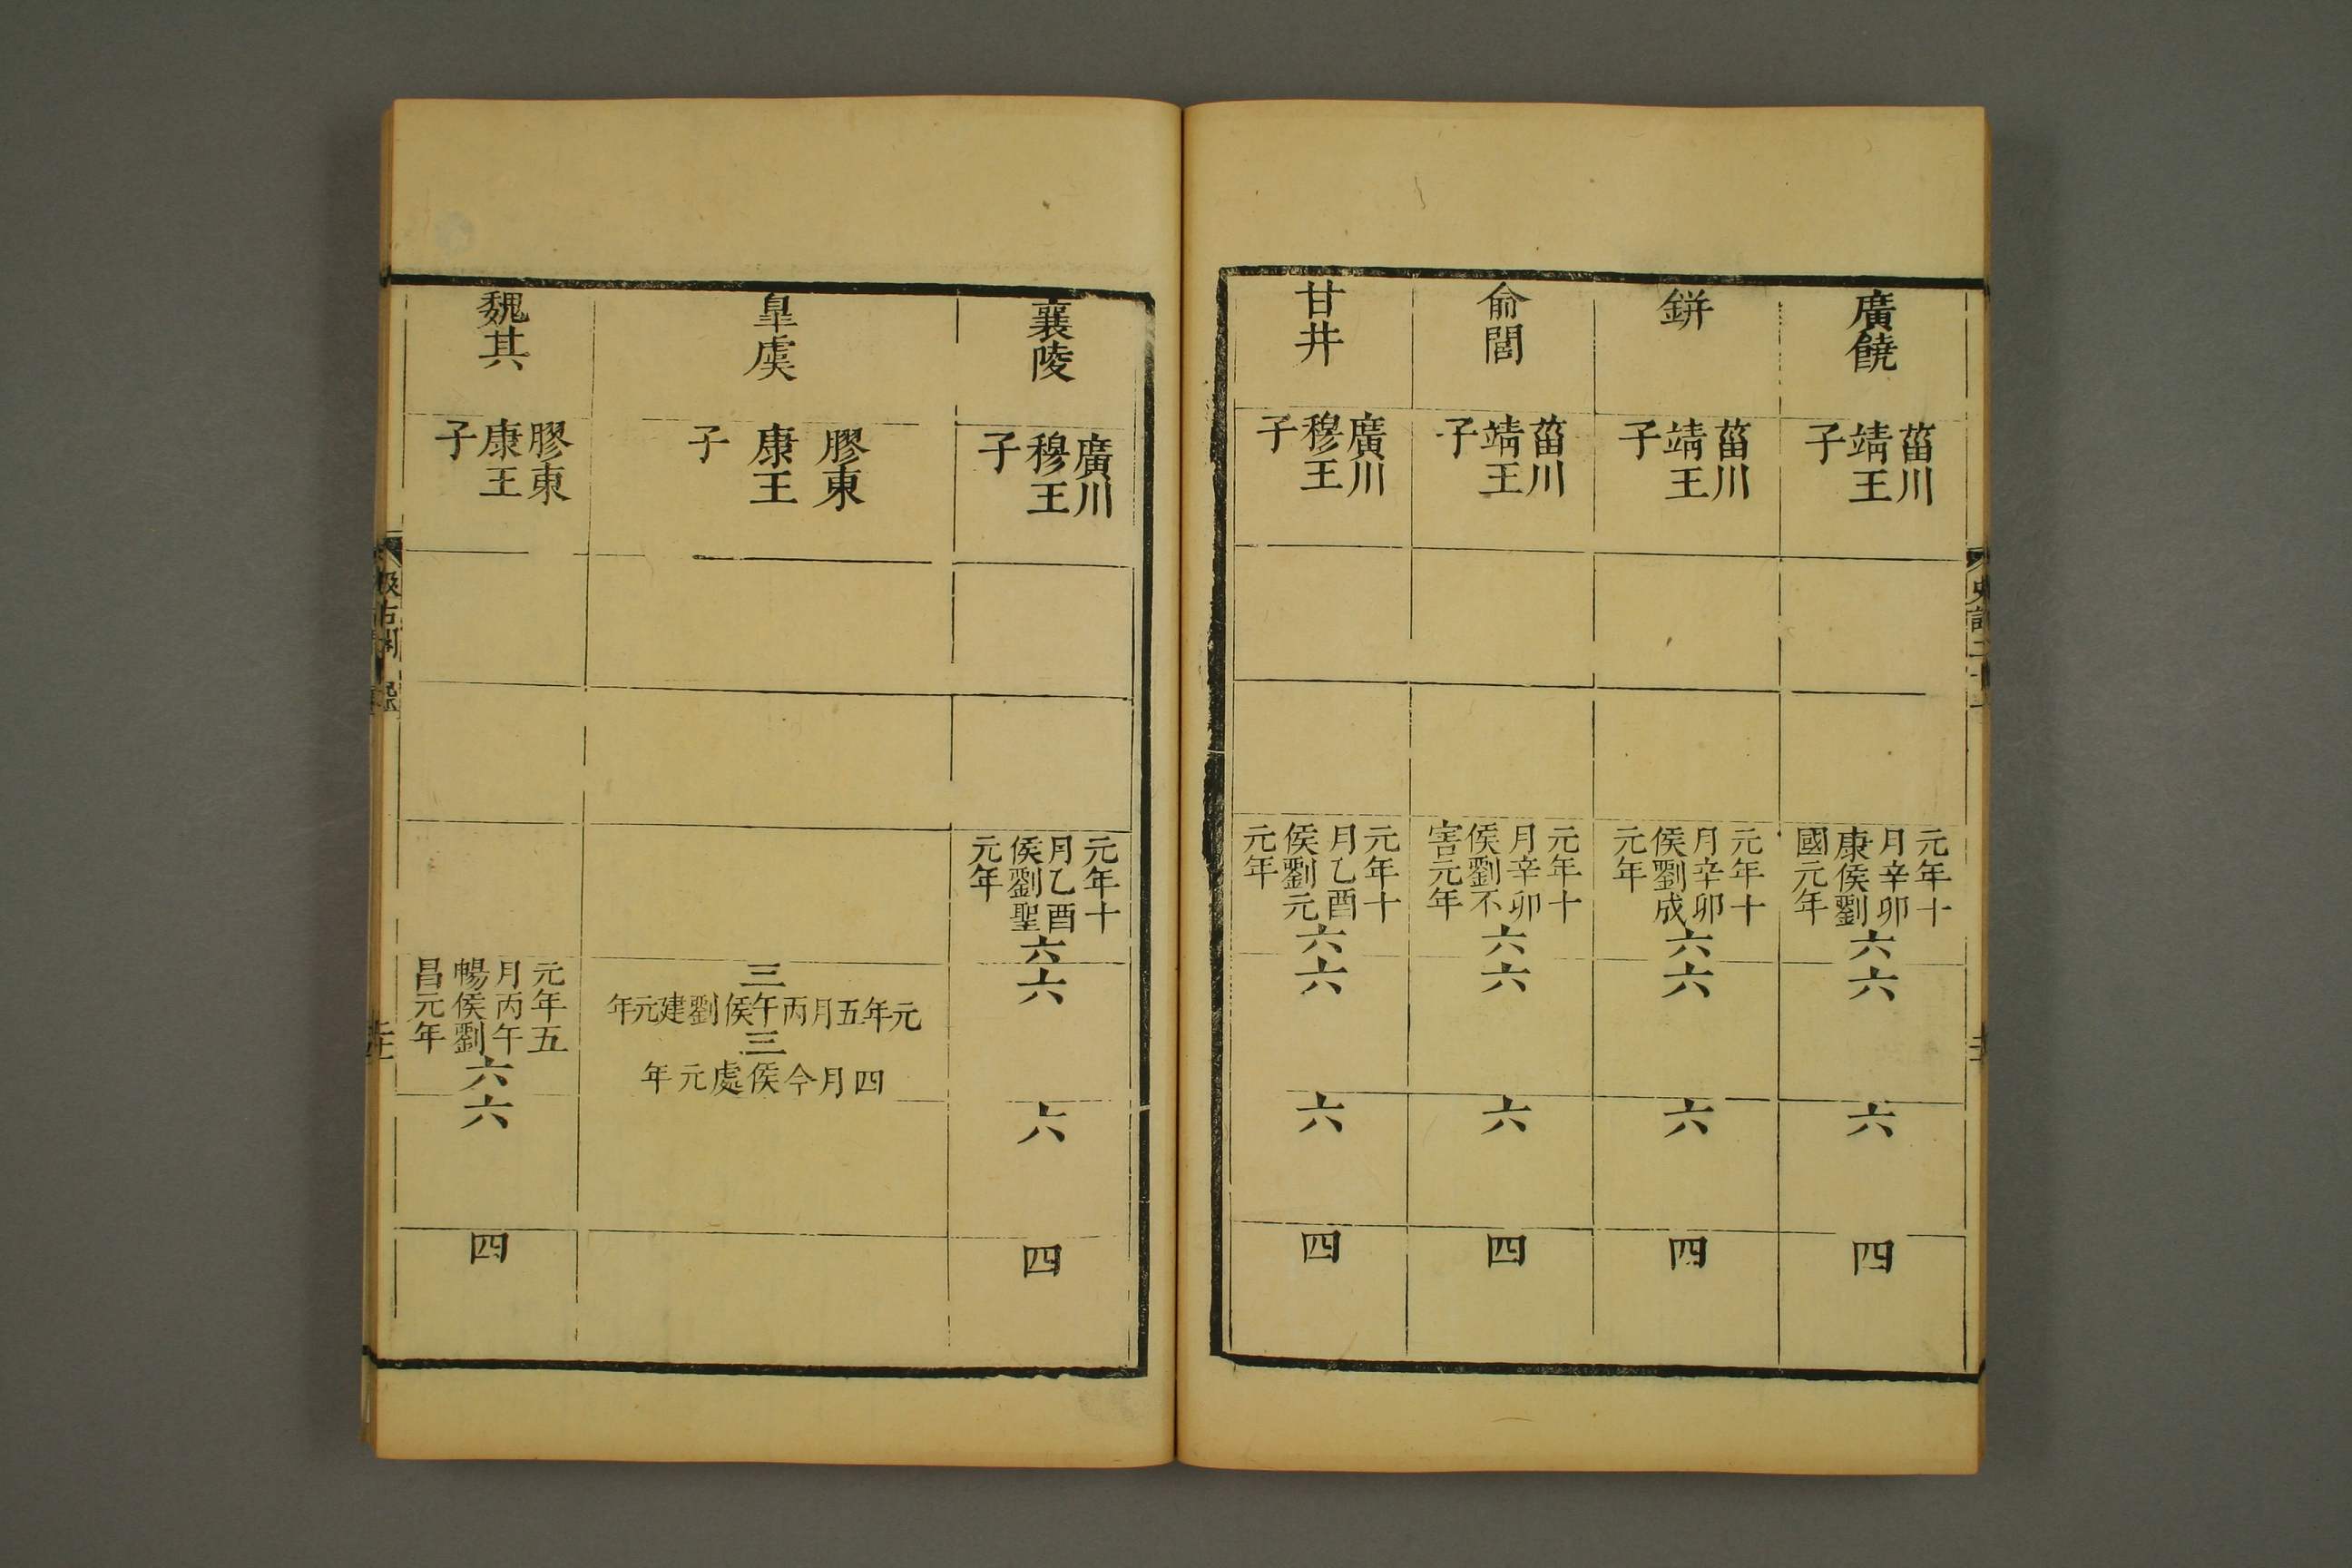 廣饒
菑川
靖王
子
元年十
月辛卯
康侯劉
國元年
六
六
六
四
鉼
菑川
靖王
子
元年十
月辛卯
侯劉成
元年
六
六
六
四
俞閭
菑川
靖王
子
元年十
月辛卯
侯劉不
害元年
六
六
六
四
甘井
廣川
穆王
子
元年十
月乙酉
侯劉元
元年
六
六
六
四
襄陵
廣川
穆王
子
元年十
月乙酉
侯劉聖
元年
六
六
六
四
皐虞
膠東
康王
子
三
元年五月丙午侯劉建元年
三
四月今侯處元年
魏其
膠東
康王
子
元年五
月丙午
暢侯劉
昌元年
六
六
四